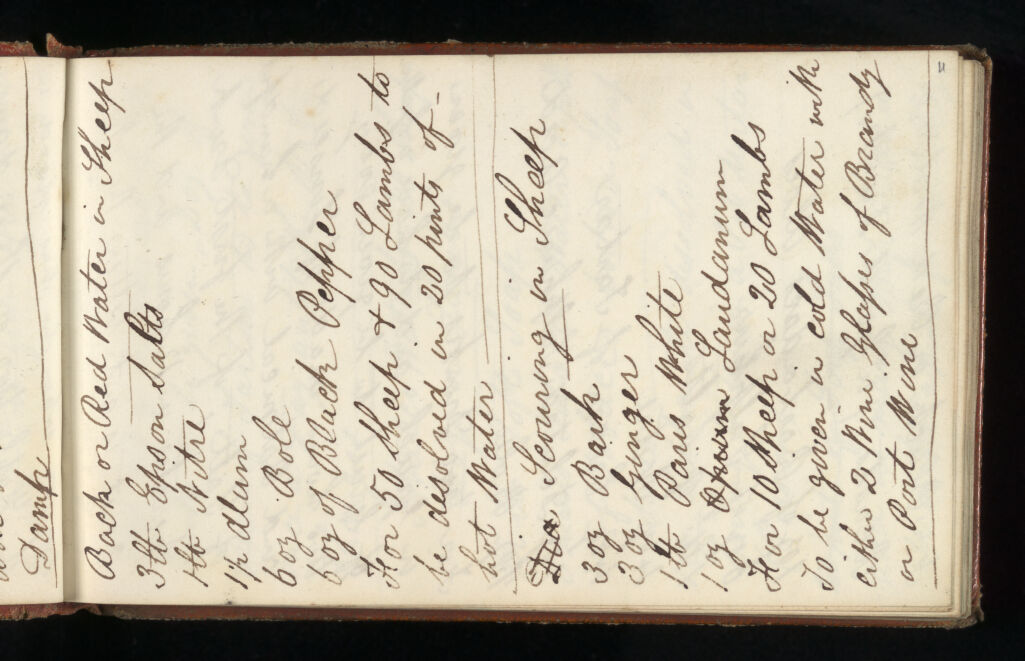 Damp
Back or Red Water in Sheep
3lb Epson Salts
1lb Nitre
1½ alum
6 oz Bole
6 oz of Black Pepper
For 50 Sheep & 90 Lambs to
be disolved in 20 pints of
hot Water
Scouring in Sheep
3 oz Bark
3 oz Ginger
1lb Paris White
1 oz Opium Laudanum
For 10 Sheep or 20 Lambs
To be given in cold Water with
either 2 Wine Glasses of Brandy
or Port Wine